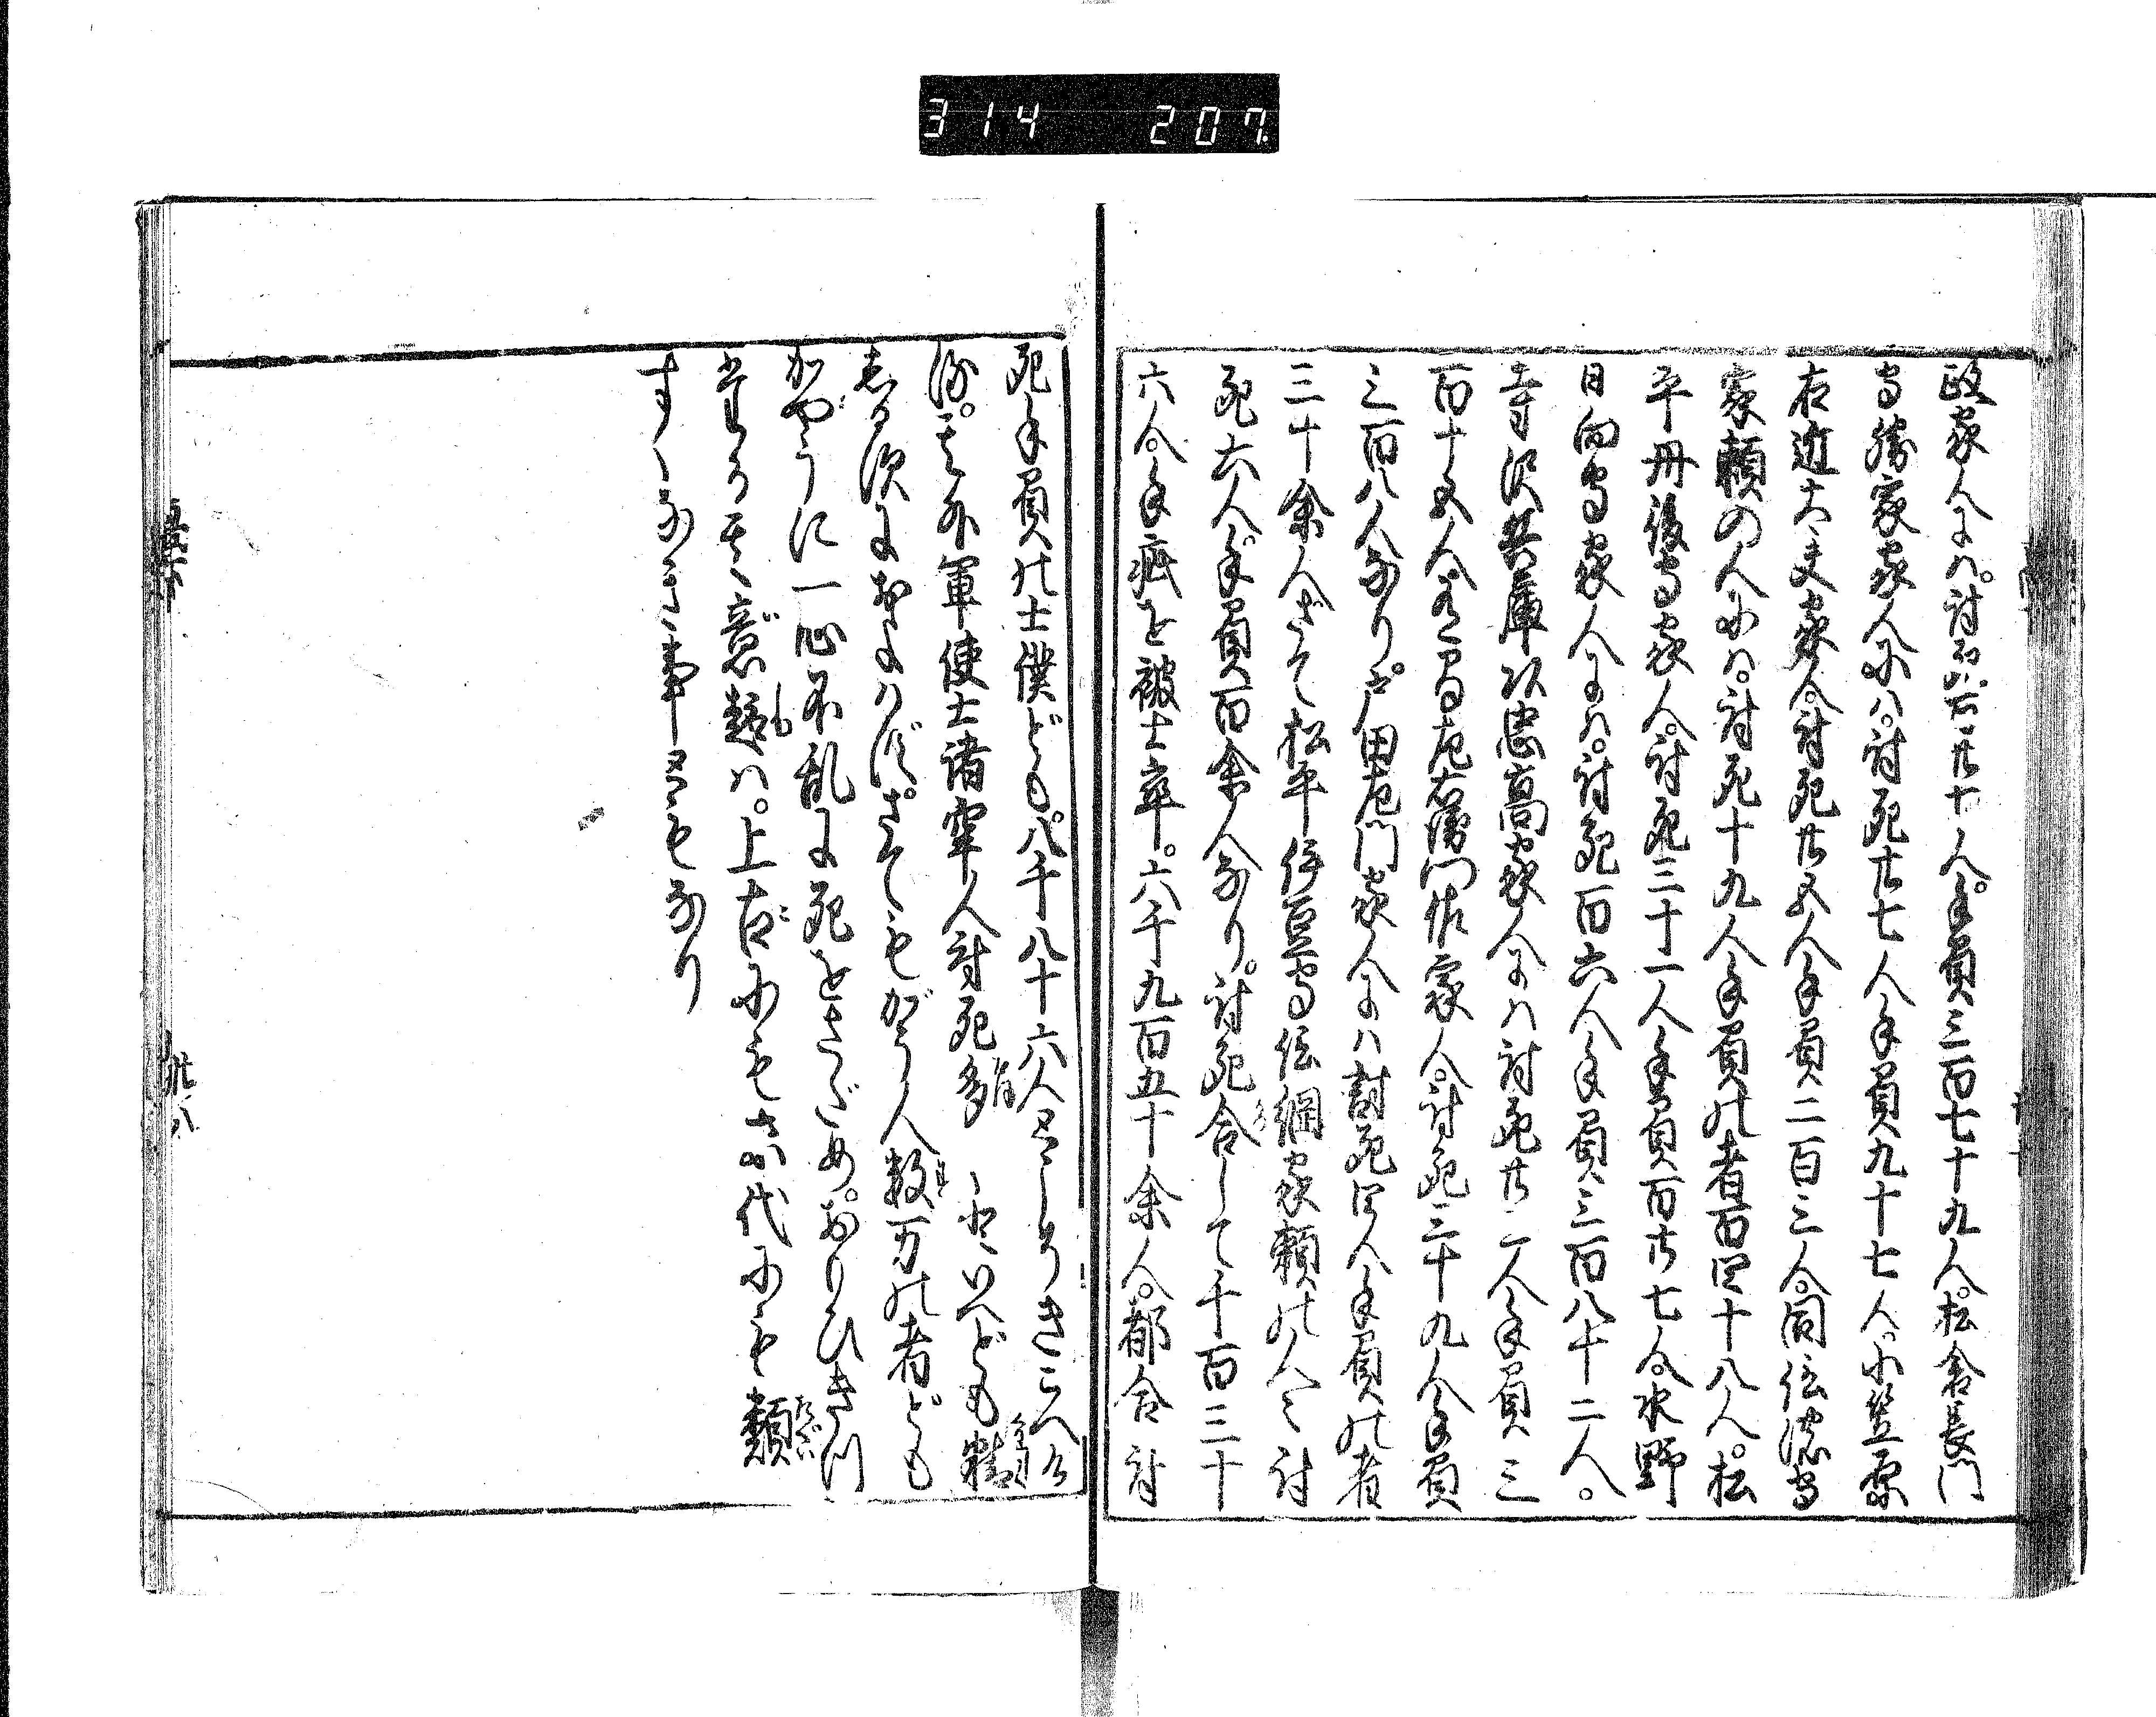 314 207
政家人にハ。討死六百廿十人。手負三百七十九人。松倉長門
守勝家家人にハ。討死廿七人手負九十七人。小笠原
右近大夫家人。討死廿五人手負二百三人。同信濃守
家頼の人にハ。討死十九人手負の者百四十八人。松
平丹後守家人。討死三十一人手負百廿七人。水野
日向守家人にハ。討死百六人手負三百八十二人。
寺沢兵庫頭忠高家人にハ討死廿二人手負三
百十五人。有馬左衛門佐家人。討死三十九人手負
三百八人なり。戸田左門家人にハ討死四人手負の者
三十余人さて松平伊豆守信綱家頼の人々討
死六人。手負百余人なり。討死合して千百三十
六人。手疵を被士卒。六千九百五十余人。都合討
死手負の士僕ども。八千八十六人としるきこへ給
ふ。其外軍使士諸窂人討死多しといへども精
しる須におよハず。さてもがう人数万の者ども
かやうに一心不乱に死をさだめ。おりひきつ
当る其意趣ハ。上古にも末代にも類
すくなき事ともなり
廿八